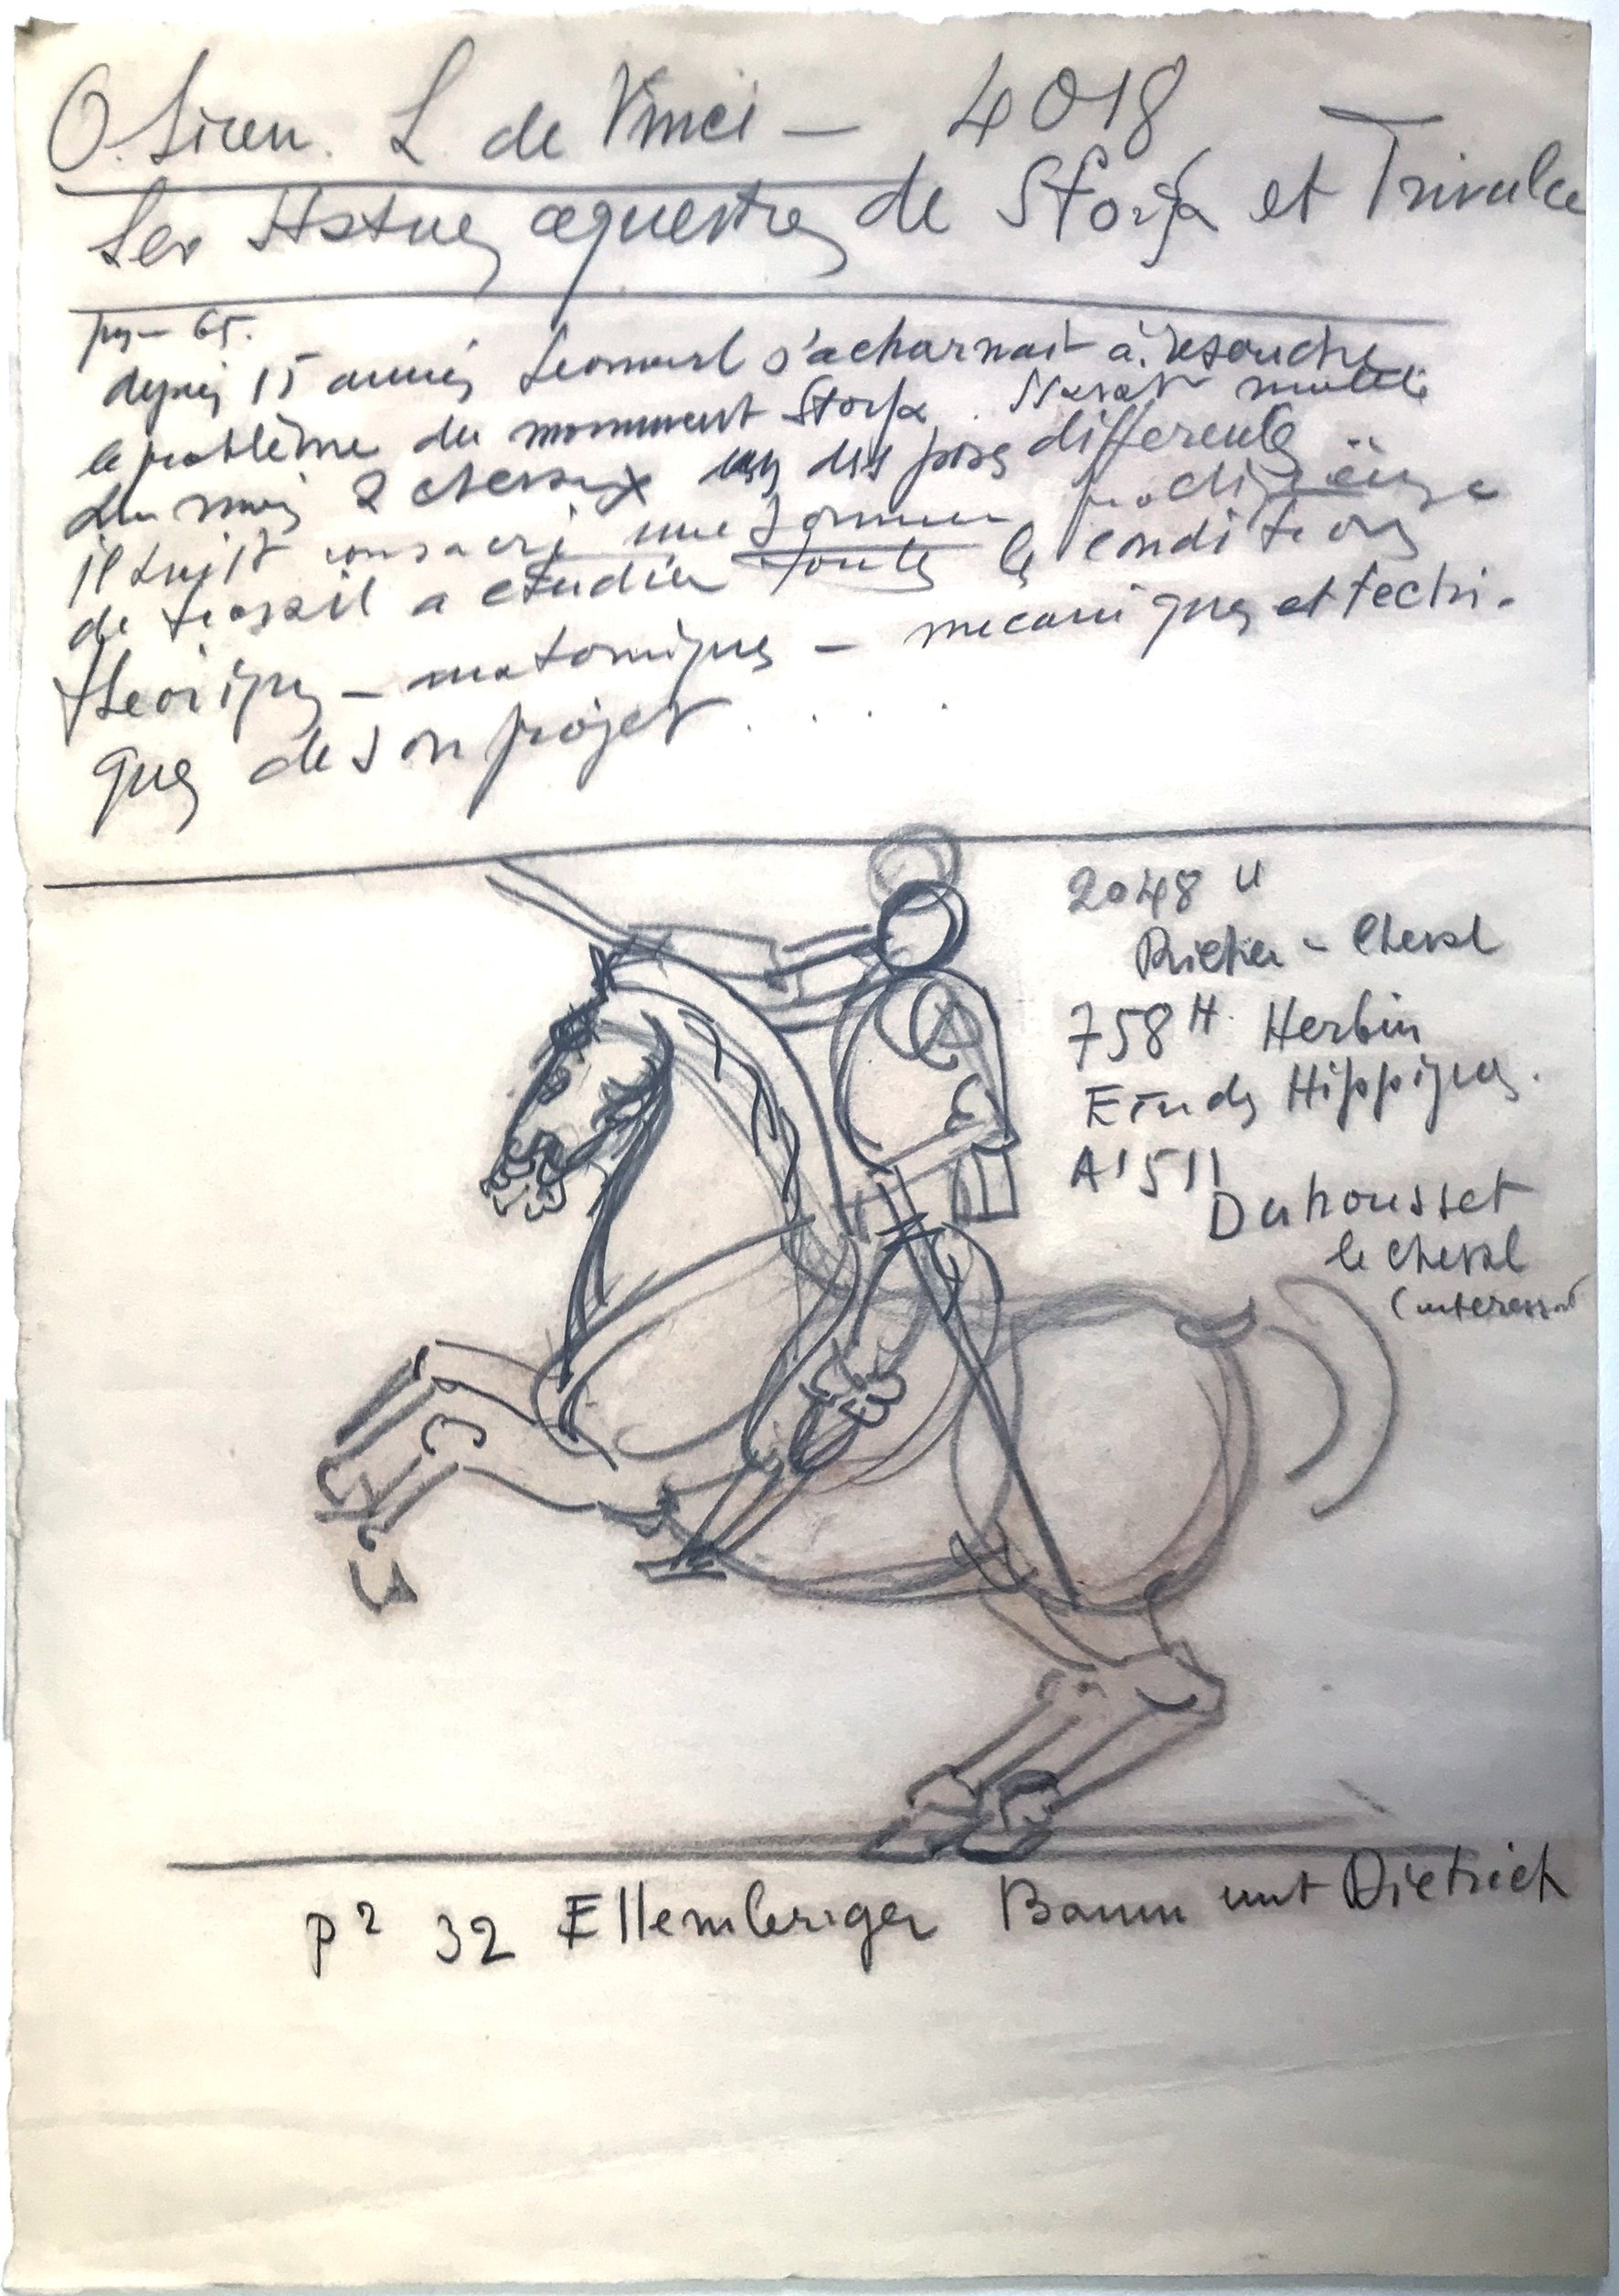 O. Siren. L de Vinci — 4018
Les Statues equestres de Sforza et Trivulce
65.
depuis 15 années Leonard s'acharnait à resoudre
le problème du monument Sforza. Il avait modelé
au moins 2 chevaux dans des poses differentes
il avait consacré une somme prodigieuse
de travail a etudier toutes les conditions
theoriques — anatomiques — mecaniques et techni-
ques de son projet . . . .
2048
Richer - Cheval
758 H. Herbin
Etudes Hippiques.
A1511
Duhousset
le cheval
(interessant
p² 32 Ellemberger Baum unt Dietrich